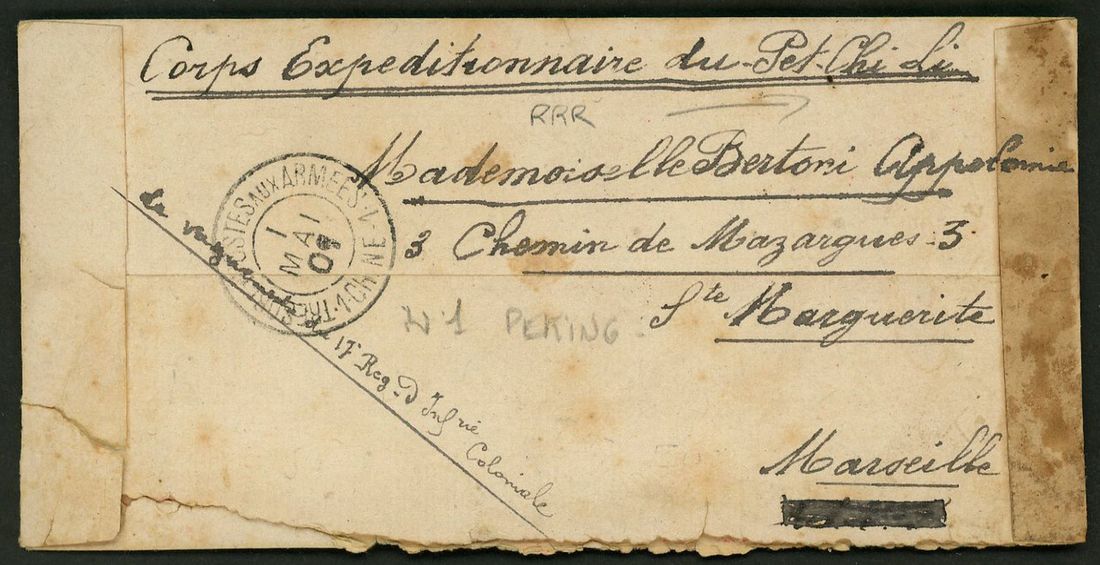 Corps Expeditionnaire du Pet-Chi Li
RRR
Mademoiselle Bertoni Appolonie
3 Chemin de Mazargues 3
Ste Marguerite
Marseille
TRESOR ET POSTES AUX ARMEES
CHINE
1
MAI
01
Le vaguemestre du 17e Reg. D Infrie
Coloniale
N 1 PEKING